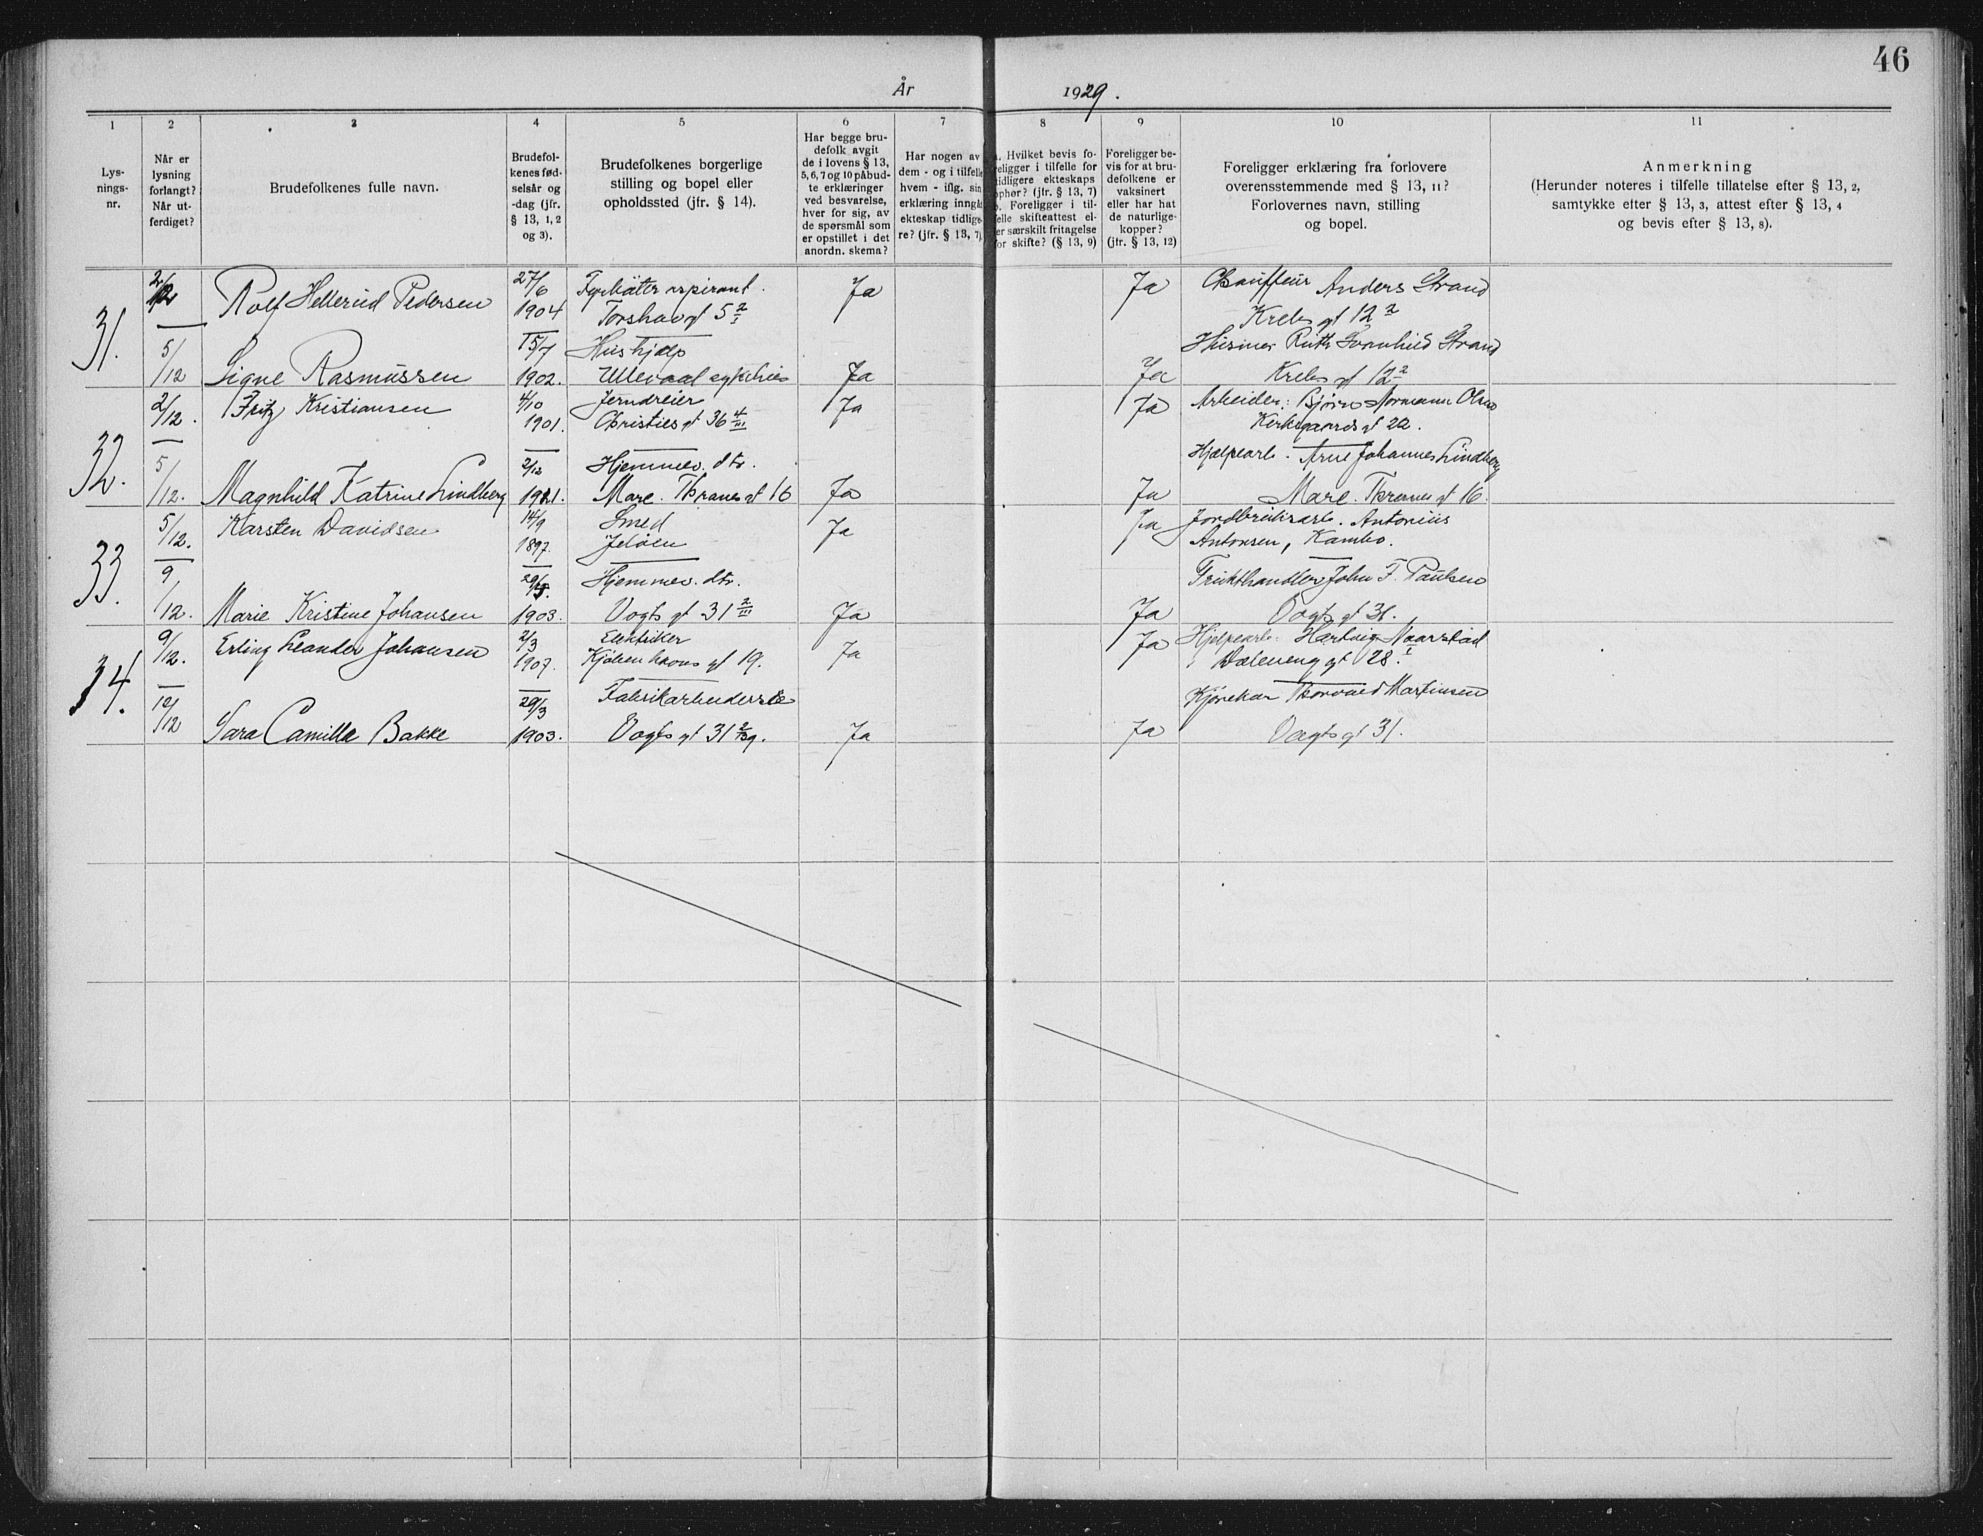 46
År 1929.
1 2 3 4 5 6 7 8 9 10 11
Lys-
nings-
nr.
Når er
lysning
forlangt?
Når ut-
ferdiget?
Brudefolkenes fulle navn.
Brudefol-
kenes fød-
selsår og
-dag (jfr.
§ 13, 1, 2
og 3).
Brudefolkenes borgerlige
stilling og bopel eller
opholdssted (jfr. § 14).
Har begge bru-
defolk avgit
de i lovens § 13,
5, 6, 7 og 10 påbud-
te erklæringer
ved besvarelse,
hver for sig, av
de spørsmål som
er opstillet i det
anordn. skema?
Har nogen av
dem - og i tilfelle
hvem - iflg. sin
erklæring inngåt
ekteskap tidlige-
re? (jfr. § 13, 7)
a. Hvilket bevis fo-
religger i tilfelle for
tidligere ekteskaps
ophør? (jfr. § 13, 7)
b. Foreligger i til-
felle skifteattest el-
ler særskilt fritagelse
for skifte? (§ 13, 9)
Foreligger be-
vis for at bru-
defolkene er
vaksinert
eller har hat
de naturlige-
kopper?
(jfr. § 13, 12)
Foreligger erklæring fra forlovere
overensstemmende med § 13, 11?
Forlovernes navn, stilling
og bopel.
Anmerkning
(Herunder noteres i tilfelle tillatelse efter § 13, 2,
samtykke efter § 13, 3, attest efter § 13, 4
og bevis efter § 13, 8).
31. 2/12 Rolf Hellerud Pedersen 27/6 1904 aspirant. Torshavgt 5 2/I Ja Ja Chauffeur Anders Strand
Krebs gt 12 2
5/12 Signe Rasmussen 15/7 1902. Hushjælp Ullevaal sykehus Ja Ja Ruth Strand
Krebs gt 12 2
32. 2/12. Fritz Kristiansen 4/10 1901. Jerndreier Christies gt 36 4/III Ja Ja Arbeider: Bjørn Normann Olsen
Kirkegaards gt 22.
5/12. Magnhild Katrine Lindberg 2/12 Hjemmev. dtr. Marc. Thranes gt 16 Ja Ja Hjælpearb. Arne Johannes Lindberg
Marc. Thranes gt 16.
33. 5/12. Karsten Davidsen 14/9 1897. Smed Jeløen Ja Ja Jordbruksarb. Antonius
Antonsen, Kambo.
9/12. Marie Kristine Johansen 1903. Hjemmev. dtr. Vogts gt 31 2/III Ja Ja Frukthandler John F. Paulsen
Vogts gt 31.
34. 9/12. Erling Leander Johansen 2/3 1907. Elektriker Kjøbenhavns gt 19. Ja Ja Hjelpearb. Hartvig Naarstad
Dæleneng gt 28. I
12/12 Sara Camilla Bakke 29/3 1903. Fabrikarbeiderske Vogts gt 31 Ja Ja Kjørekar Thorvald Martinsen
Vogts gt 31.